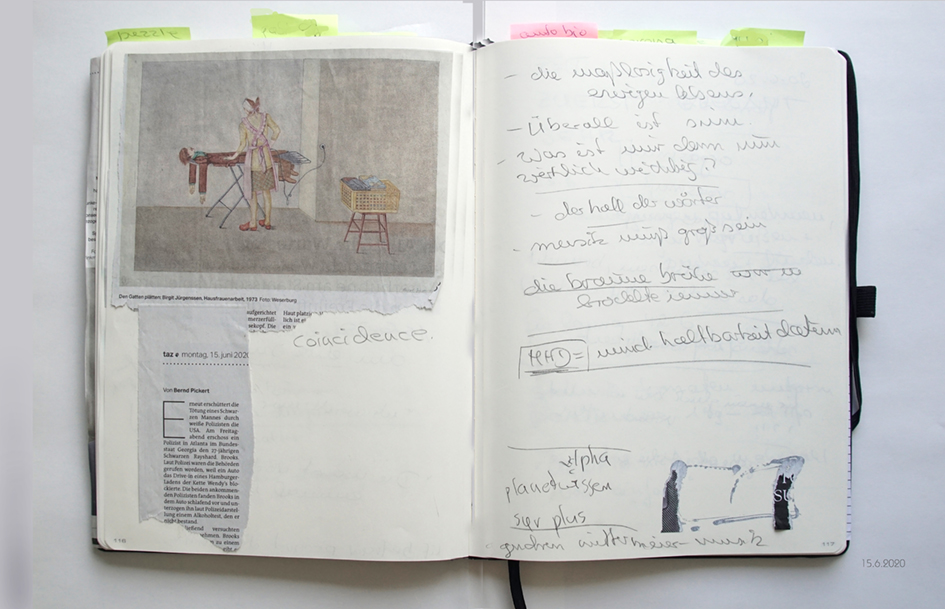 puzzle
auto bio
Den Gatten plätten: Birgit Jürgenssen, Hausfrauenarbeit, 1973 Foto: Weserburg
aufgerichtet
merzerfüll-
sekopf. Die
Haut platzt
lich ist e
ein
coincidence.
taz montag, 15. juni 2020
Von Bernd Pickert
Erneut erschüttert die
Tötung eines Schwar-
zen Mannes durch
weiße Polizisten die
USA. Am Freitag-
abend erschoss ein
Polizist in Atlanta im Bundes-
staat Georgia den 27-jährigen
Schwarzen Rayshard Brooks.
Laut Polizei waren die Behörden
gerufen worden, weil ein Auto
das Drive-in eines Hamburger-
Ladens der Kette Wendy's blo-
ckierte. Die beiden ankommen-
den Polizisten fanden Brooks in
dem Auto schlafend vor und un-
terzogen ihn laut Polizeidarstel-
lung einem Alkoholtest, den er
nicht bestand.
ließend versuchten
nehmen. Brooks
zu einem
116
- die maßlosigkeit des
ewigen lebens.
- Überall ist sinn.
- Was ist mir denn nun
wirklich wichtig?
- der hall der wörter
- mensch muß groß sein
die braune brühe
bröckelte immer
MHD = mindhaltbarkeitdatum
alpha
planetwissen
srf plus
gudrun mittermeier-musik
SU
117
15.6.2020